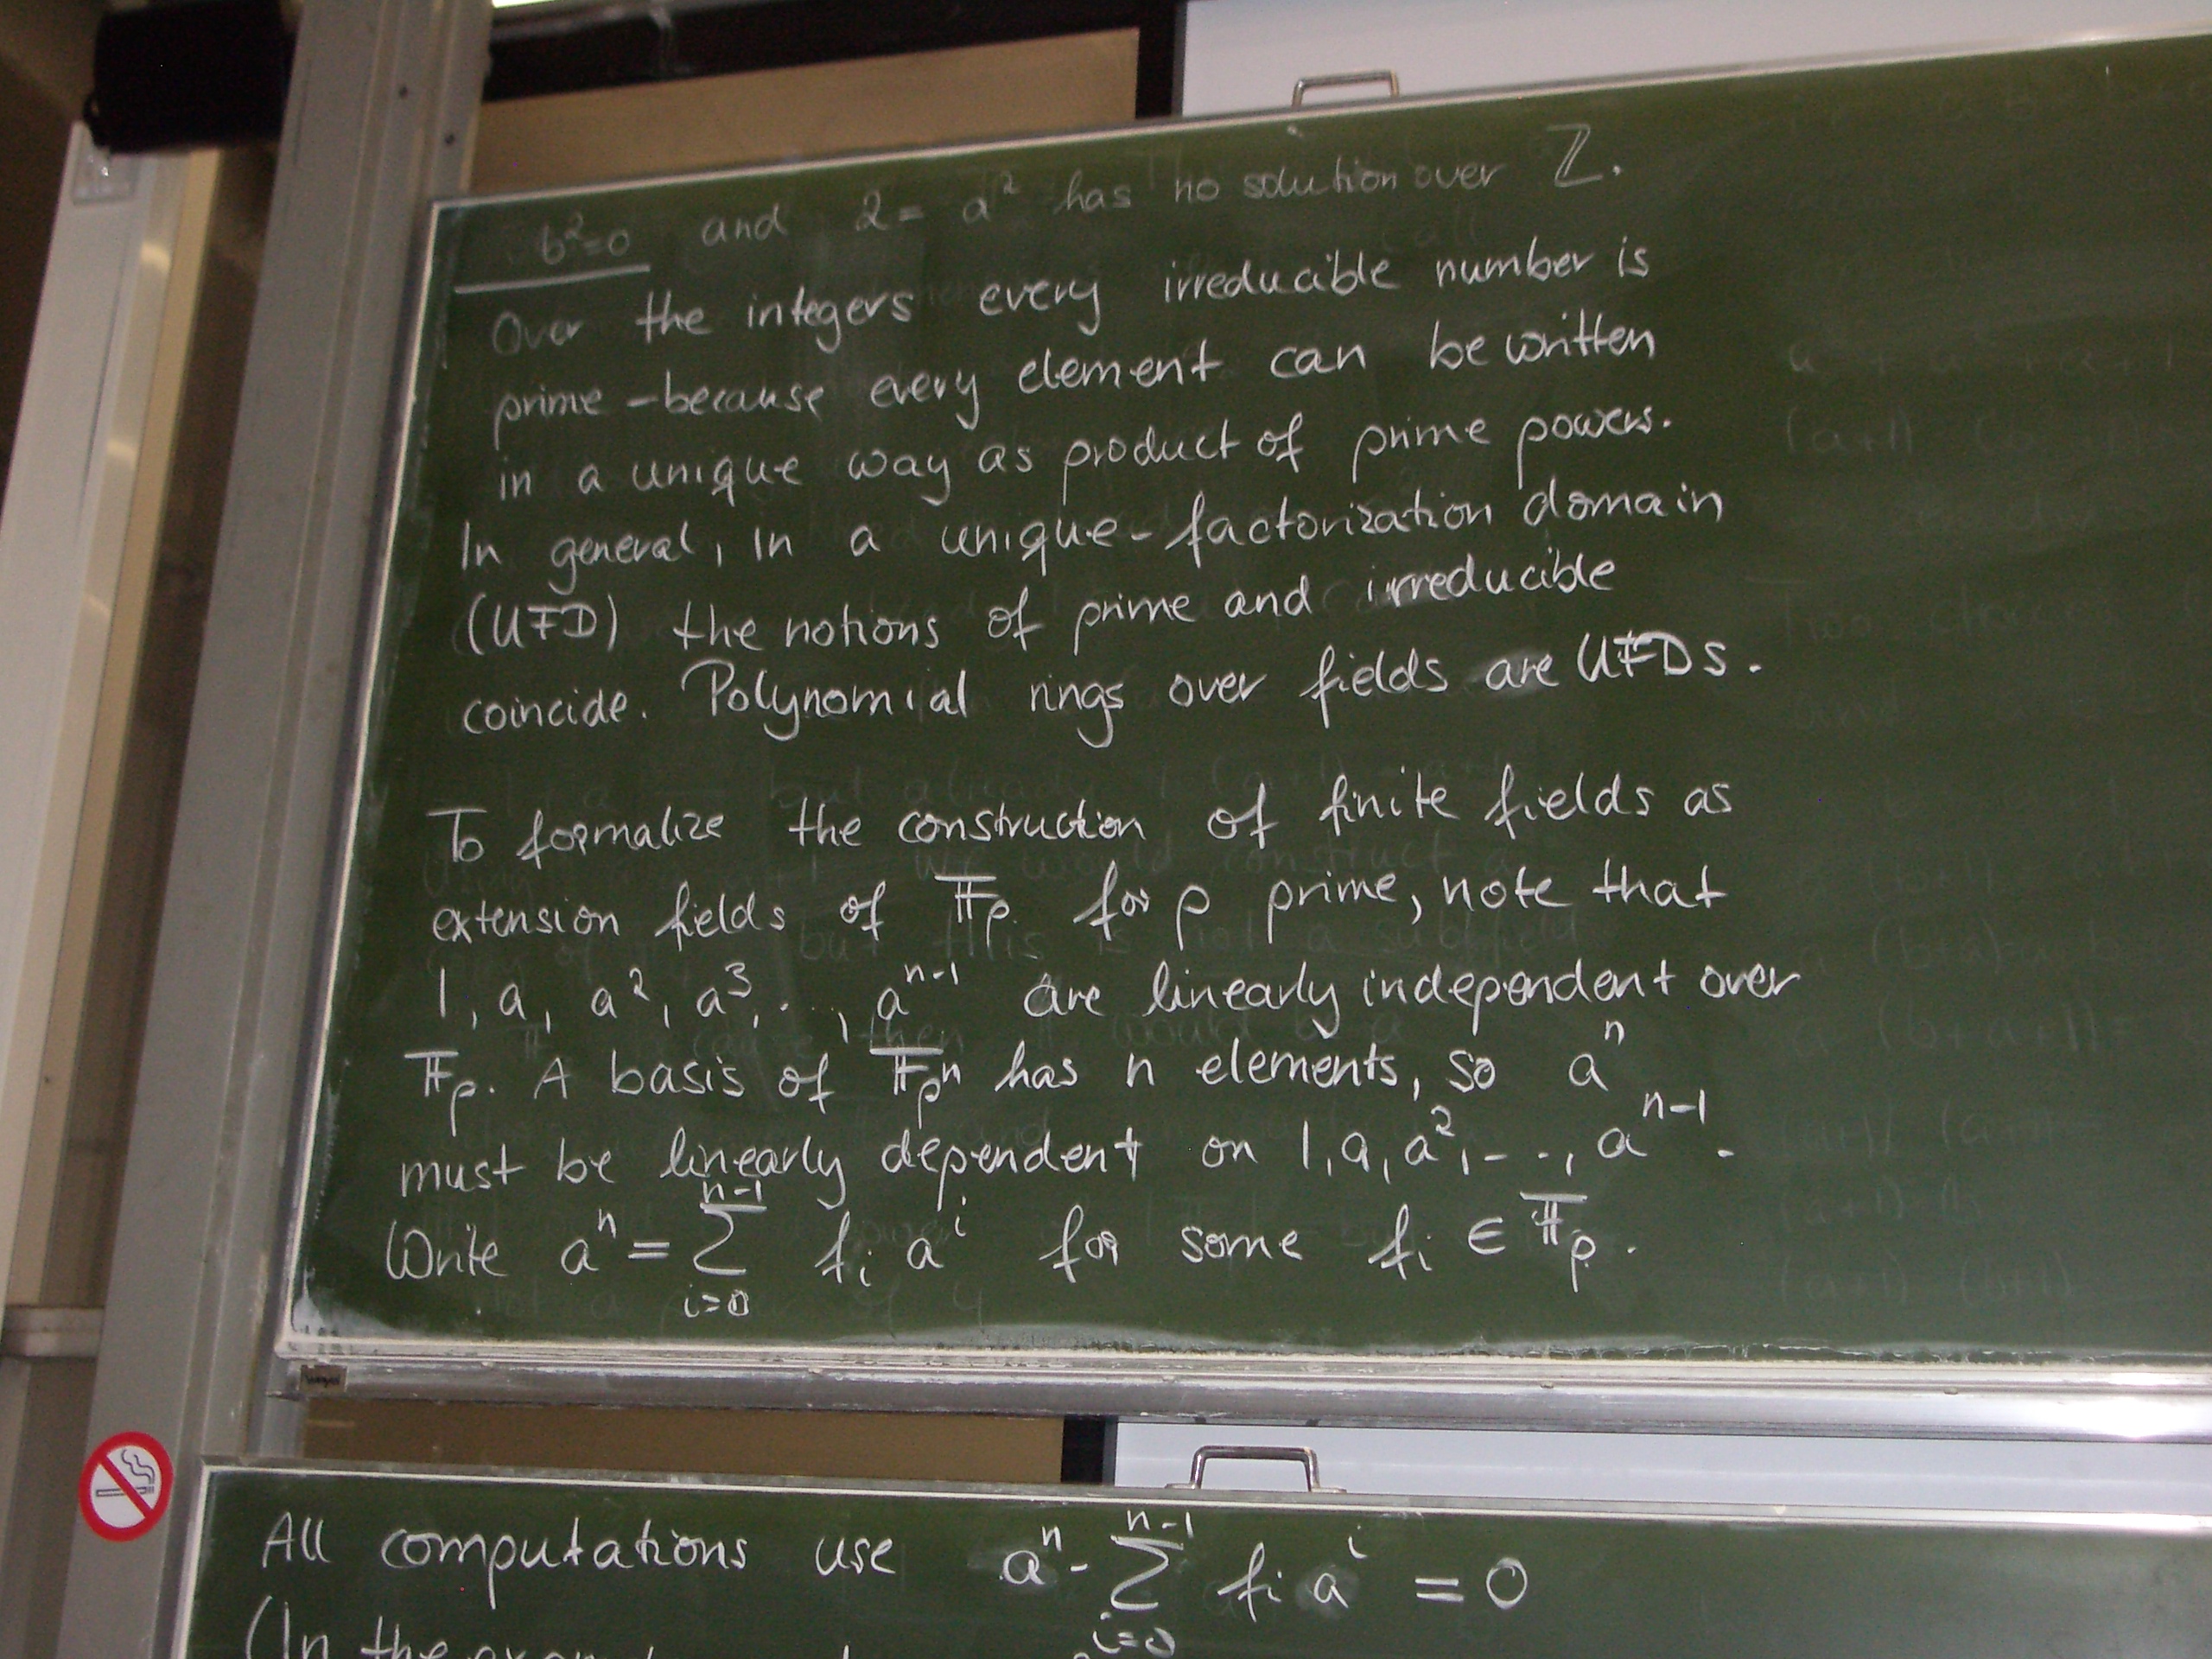 b²=0 and 2 = a² has no solution over ℤ.
Over the integers every irreducible number is
prime - because every element can be written
in a unique way as product of prime powers.
In general, in a unique-factorization domain
(UFD) the notions of prime and irreducible
coincide. Polynomial rings over fields are UFDs.
To formalize the construction of finite fields as
extension fields of 𝔽_p for p prime, note that
1, a, a², a³, ..., a^{n-1} are linearly independent over
𝔽_p. A basis of 𝔽_{p^n} has n elements, so a^n
must be linearly dependent on 1, a, a², ..., a^{n-1}.
Write a^n = ∑_{i=0}^{n-1} f_i a^i for some f_i ∈ 𝔽_p.
All computations use a^n - ∑_{i=0}^{n-1} f_i a^i = 0
(In the